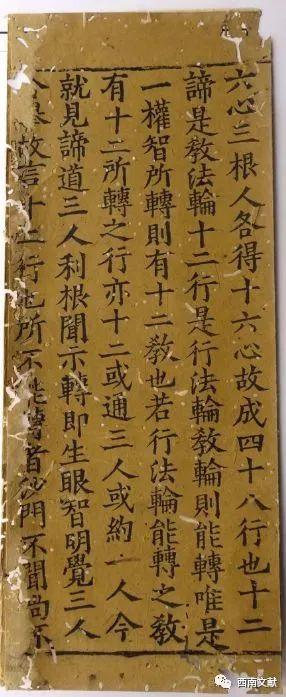 六心三根人各得十六心故成四十八行也十二
諦是教法輪十二行是行法輪教輪則能轉唯是
一權智所轉則有十二教也若行法輪能轉之教
有十二所轉之行亦十二或通三人或約一人今
就見諦道三人利根聞示轉即生眼智明覺三人
合舉故言十二行也所不能轉者沙門不聞尚不
西南文献